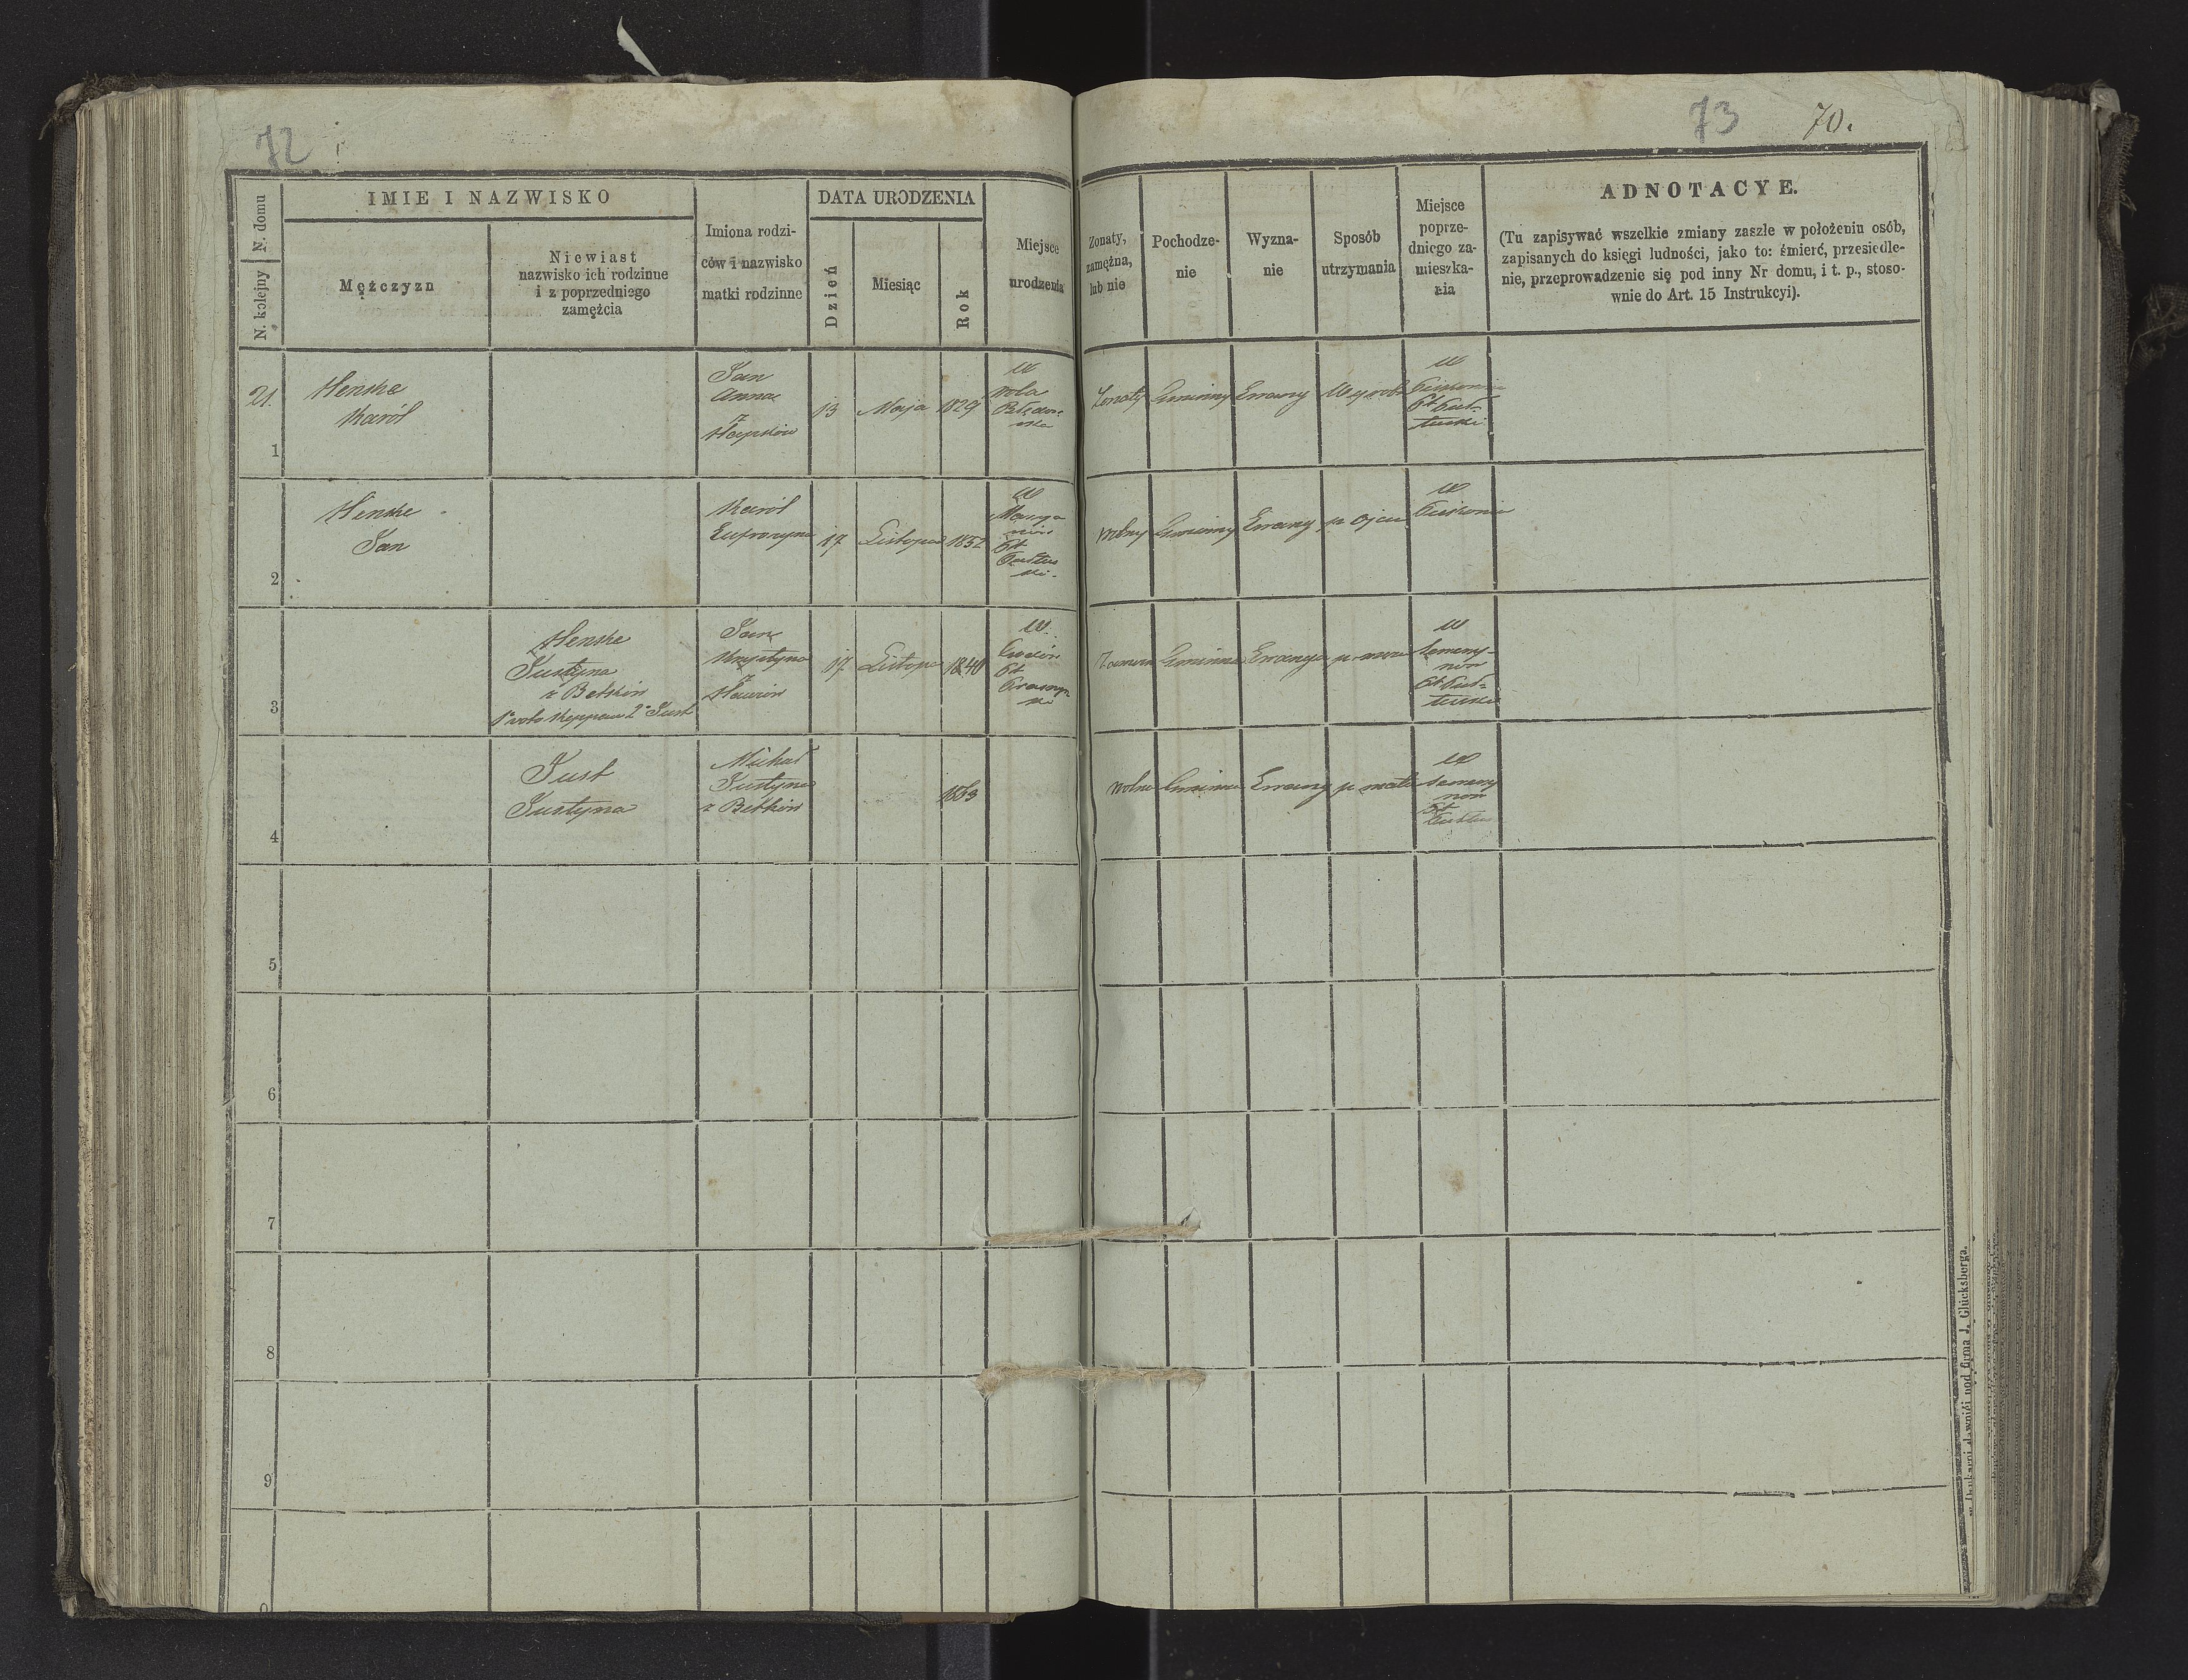 72
73 70.
N. kolejny N. domu
IMIE I NAZWISKO
Mężczyzn
Niewiast
nazwisko ich rodzinne
i z poprzedniego
zamężcia
Imiona rodzi-
ców i nazwisko
matki rodzinne
DATA URODZENIA
Dzień
Miesiąc
Rok
Miejsce
urodzenia
Żonaty,
zamężna,
lub nie
Pochodze-
nie
Wyzna-
nie
Sposób
utrzymania
Miejsce
poprze-
dniego za-
mieszka-
nia
ADNOTACYE.
(Tu zapisywać wszelkie zmiany zaszłe w położeniu osób,
zapisanych do księgi ludności, jako to: śmierć, przesiedle-
nie, przeprowadzenie się pod inny Nr domu, i t. p., stoso-
wnie do Art. 15 Instrukcyi).
21.
1
Henske
Karól
Jan
Anna
z
13
Maja
1829
w
Wola
Żonaty
Gminny
Ewang
Wyrob
w
2
Henske
Jan
Karól
Eufrozyna
17
Listopad
1852
w
Wolny
Gminny
Ewang
p ojcu
w
3
Henske
Justyna
z Betkiów
1º voto 2º Just
Jan
Krystyna
z
17
Listopa
1840
w
Gminna
Ewangie
w
4
Just
Justyna
Michał
Justyna
z Betkiów
1863
Wolna
Gminna
Ewang
p matce
w
5
6
7
8
9
0
w Drukarni dawniéj pod firmą J. Glücksberga.